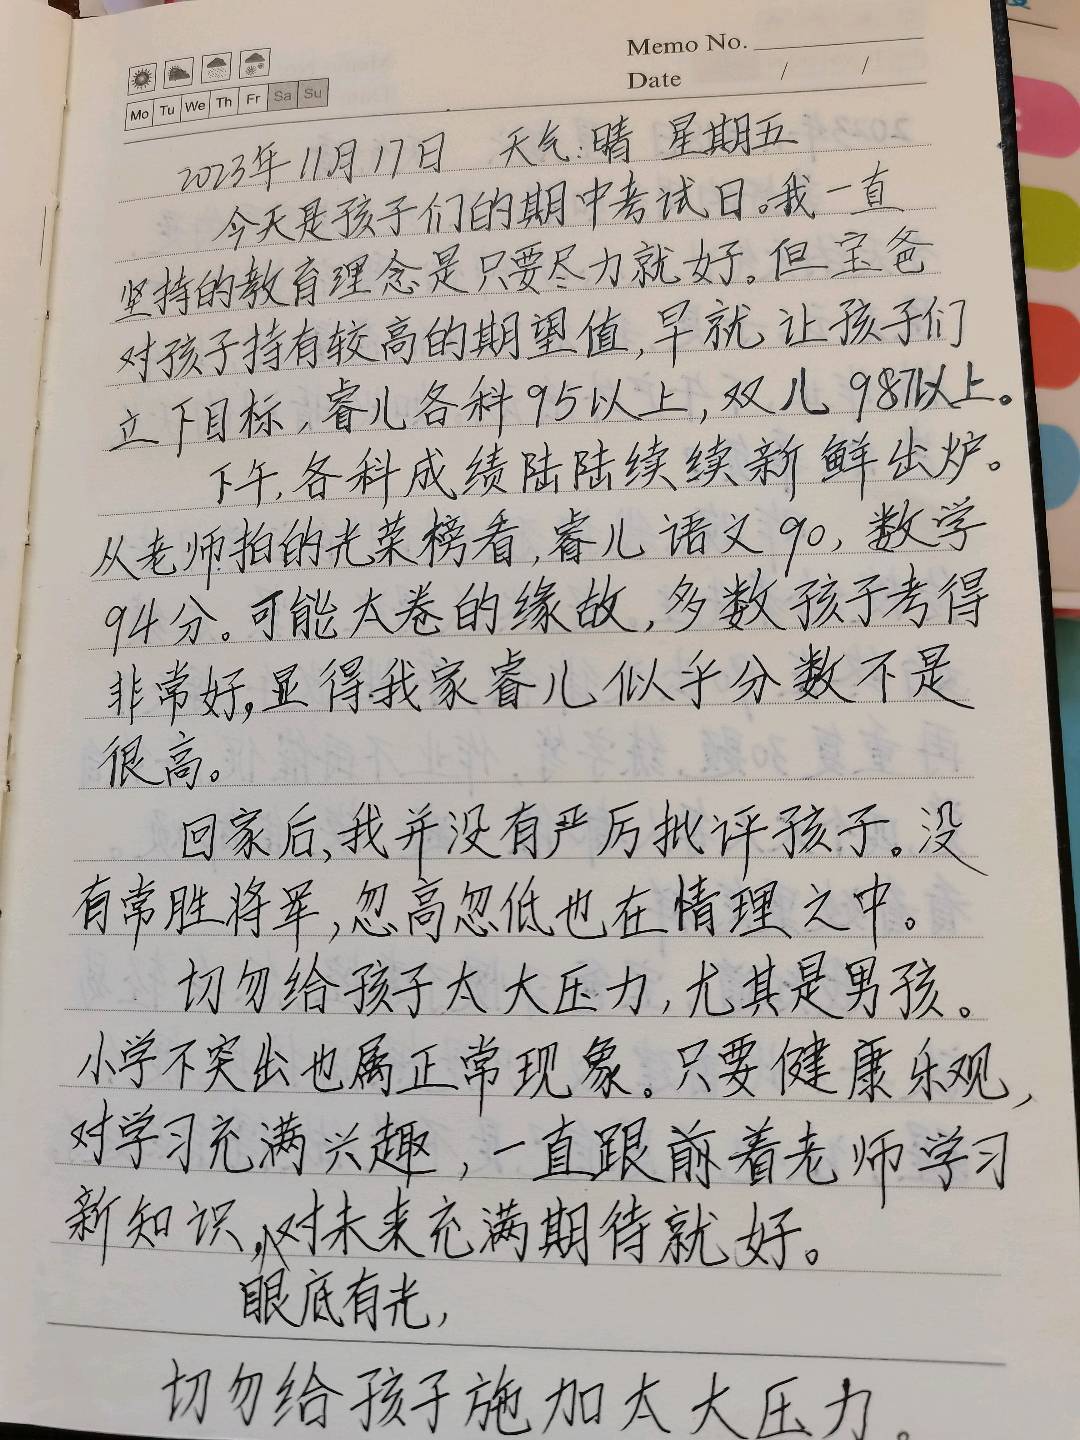 Memo No.
Date / /
Mo Tu We Th Fr Sa Su
2023年11月17日 天气:晴 星期五
今天是孩子们的期中考试日。我一直
坚持的教育理念是只要尽力就好。但宝爸
对孩子持有较高的期望值,早就让孩子们
立下目标,睿儿各科95以上,双儿98以上。
下午,各科成绩陆陆续续新鲜出炉。
从老师拍的光荣榜看,睿儿语文90,数学
94分。可能大卷的缘故,多数孩子考得
非常好,显得我家睿儿似乎分数不是
很高。
回家后,我并没有严厉批评孩子。没
有常胜将军,忽高忽低也在情理之中。
切勿给孩子太大压力,尤其是男孩。
小学不突出也属正常现象。只要健康乐观,
对学习充满兴趣,一直跟前着老师学习
新知识,对未来充满期待就好。
眼底有光,
切勿给孩子施加太大压力。